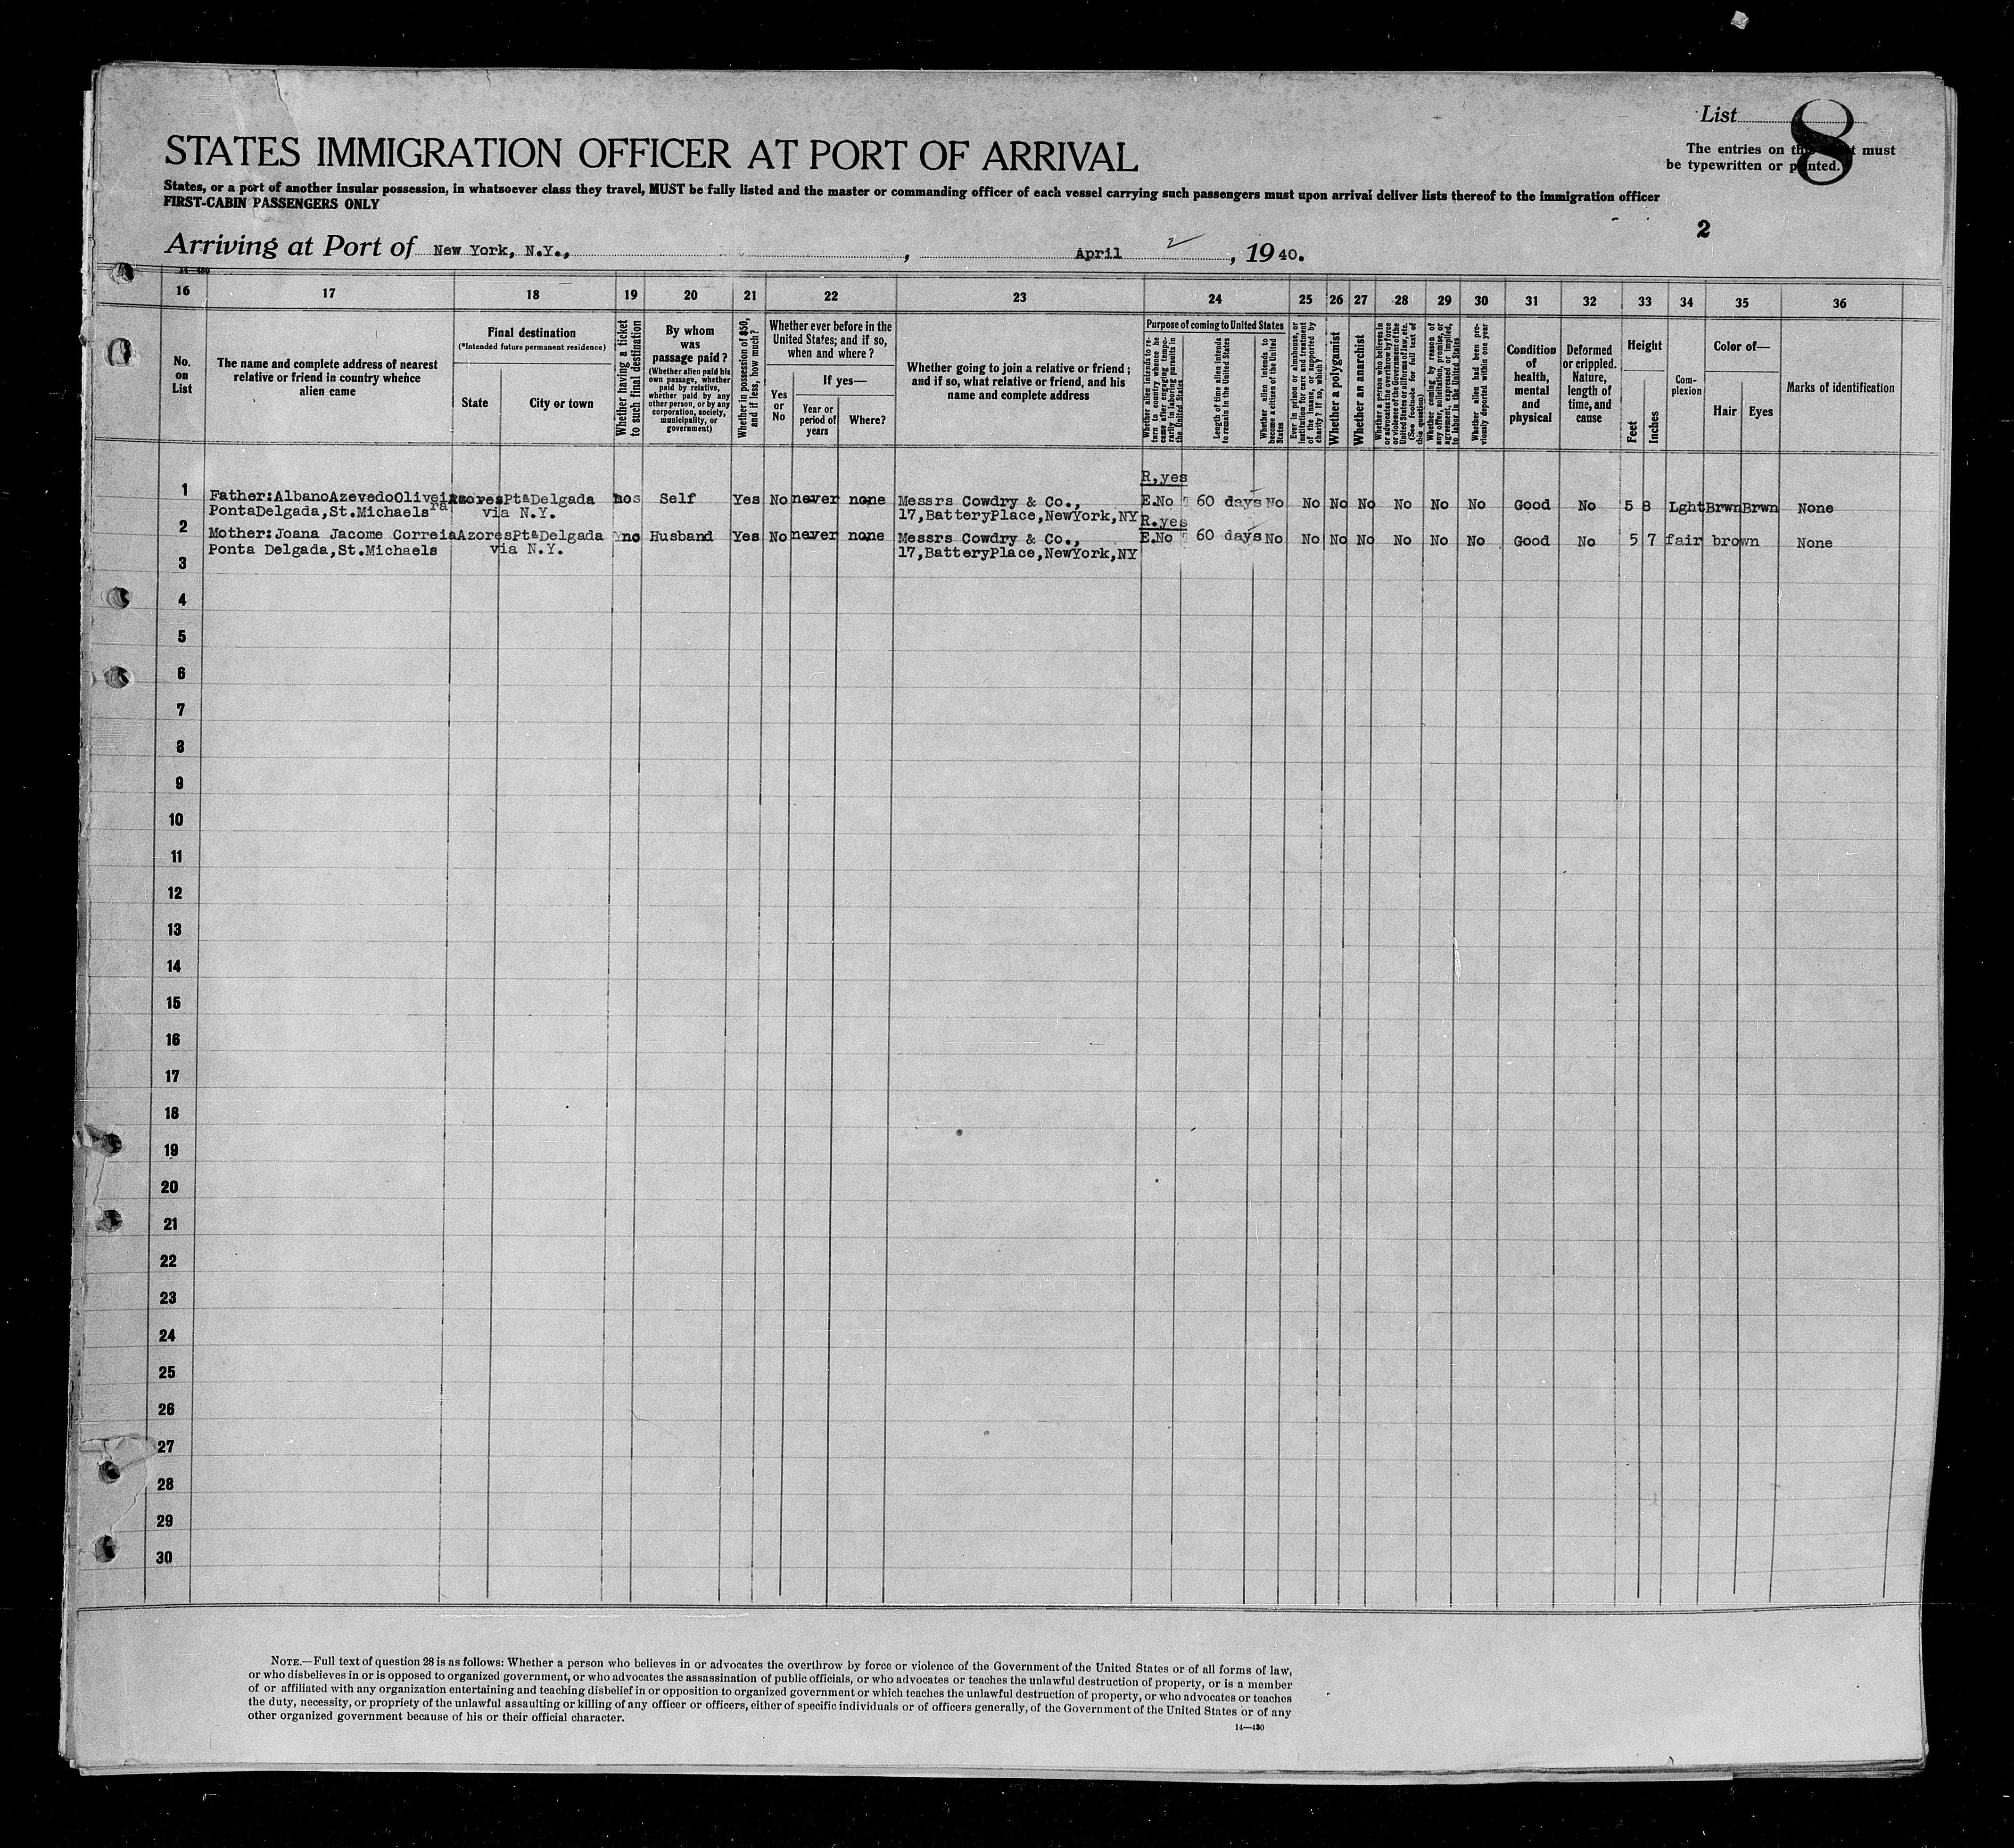 List 8
The entries on this must
be typewritten or printed.
STATES IMMIGRATION OFFICER AT PORT OF ARRIVAL
States, or a port of another insular possession, in whatsoever class they travel, MUST be fully listed and the master or commanding officer of each vessel carrying such passengers must upon arrival deliver lists thereof to the immigration officer
FIRST-CABIN PASSENGERS ONLY
2
Arriving at Port of New York, N.Y., , April 2, 1940.
14—480
16 17 18 19 20 21 22 23 24 25 26 27 28 29 30 31 32 33 34 35 36
No.
on
List
The name and complete address of nearest
relative or friend in country whence
alien came
Final destination
(*Intended future permanent residence)
State City or town
Whether having a ticket
to such final destination
By whom
was
passage paid?
(Whether alien paid his
own passage, whether
paid by relative,
whether paid by any
other person, or by any
corporation, society,
municipality, or
government)
Whether in possession of $50,
and if less, how much?
Whether ever before in the
United States; and if so,
when and where?
Yes
or
No
If yes—
Year or
period of
years
Where?
Whether going to join a relative or friend;
and if so, what relative or friend, and his
name and complete address
Purpose of coming to United States
Whether alien intends to re-
turn to country whence he
came after engaging tempo-
rarily in laboring pursuits in
the United States
Length of time alien intends
to remain in the United States
Whether alien intends to
become a citizen of the United
States
Ever in prison or almshouse, or
institution for care and treatment
of the insane, or supported by
charity? If so, which?
Whether a polygamist
Whether an anarchist
Whether a person who believes in
or advocates the overthrow by force
or violence of the Government of the
United States or all forms of law, etc.
(See footnote for full text of
this question)
Whether coming by reason of
any offer, solicitation, promise, or
agreement, expressed or implied,
to labor in the United States
Whether alien had been pre-
viously deported within one year
Condition
of
health,
mental
and
physical
Deformed
or crippled.
Nature,
length of
time, and
cause
Height
Feet Inches
Com-
plexion
Color of—
Hair Eyes
Marks of identification
R,yes
1 Father:AlbanoAzevedoOlivei AzoresPtaDelgada no Self Yes No never none Messrs Cowdry & Co., E.No 60 days No No No No No No No Good No 5 8 Lght Brwn Brwn None
PontaDelgada,St.Michaels ra via N.Y. 17,BatteryPlace,NewYork,NY
R.yes
2 Mother:Joana Jacome Correia AzoresPtaDelgada no Husband Yes No never none Messrs Cowdry & Co., E.No 60 days No No No No No No No Good No 5 7 fair brown None
Ponta Delgada,St.Michaels via N.Y. 17,BatteryPlace,NewYork,NY
3
4
5
6
7
8
9
10
11
12
13
14
15
16
17
18
19
20
21
22
23
24
25
26
27
28
29
30
NOTE.—Full text of question 28 is as follows: Whether a person who believes in or advocates the overthrow by force or violence of the Government of the United States or of all forms of law,
or who disbelieves in or is opposed to organized government, or who advocates the assassination of public officials, or who advocates or teaches the unlawful destruction of property, or is a member
of or affiliated with any organization entertaining and teaching disbelief in or opposition to organized government or which teaches the unlawful destruction of property, or who advocates or teaches
the duty, necessity, or propriety of the unlawful assaulting or killing of any officer or officers, either of specific individuals or of officers generally, of the Government of the United States or of any
other organized government because of his or their official character.
14—430